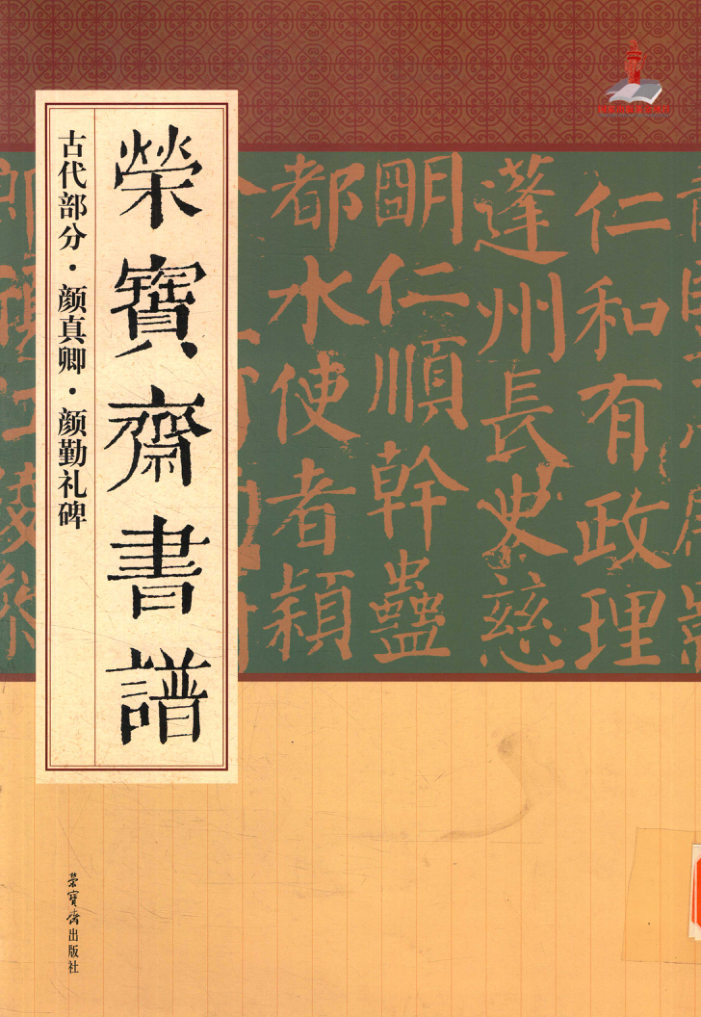 榮寶齋書譜
古代部分·颜真卿·颜勤礼碑
仁和有政理
蓬州長史慈
明仁順幹蠱
都水使者穎
荣宝斋出版社